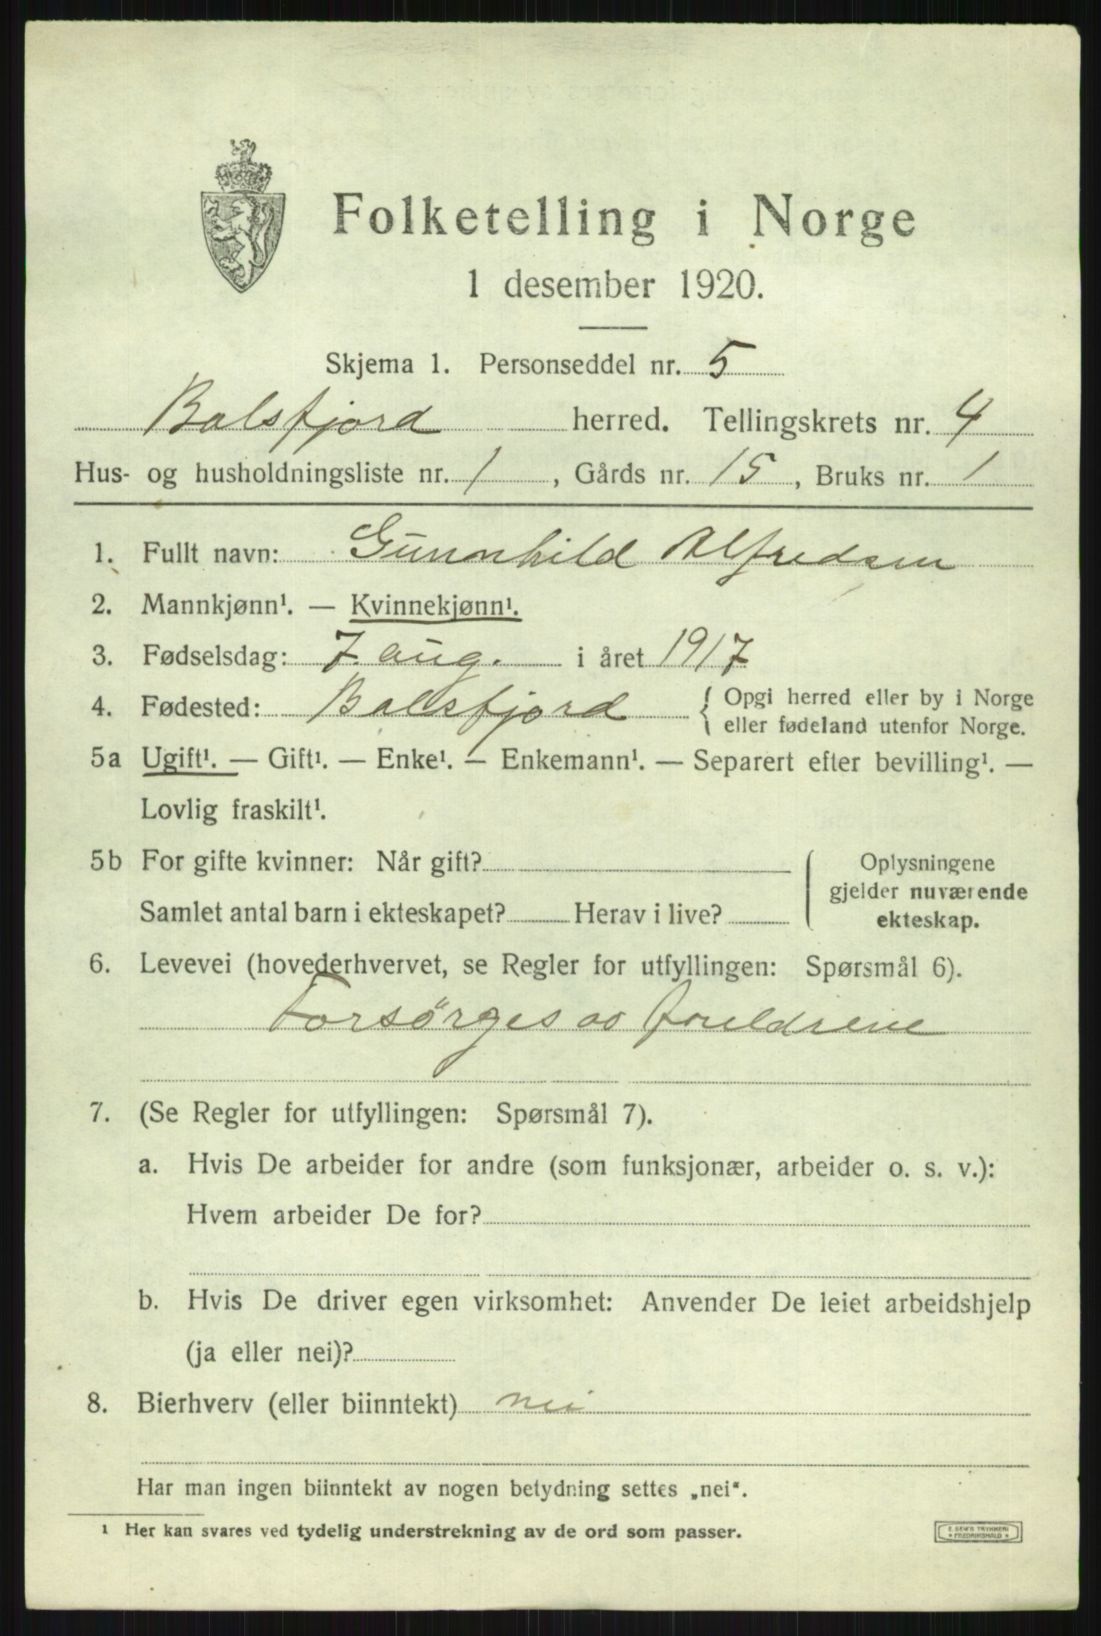 Folketelling i Norge
1 desember 1920.
Skjema 1. Personseddel nr. 5
Balsfjord herred. Tellingskrets nr. 4
Hus- og husholdningsliste nr. 1, Gårds nr. 15, Bruks nr. 1
1. Fullt navn: Gunnhild Alfredsen
2. Mannkjønn¹. — Kvinnekjønn¹.
3. Fødselsdag: 7. aug. i året 1917
4. Fødested: Balsfjord { Opgi herred eller by i Norge
eller fødeland utenfor Norge.
5a Ugift¹. — Gift¹. — Enke¹. — Enkemann¹. — Separert efter bevilling¹. —
Lovlig fraskilt¹.
5b For gifte kvinner: Når gift?
Samlet antal barn i ekteskapet? Herav i live?
Oplysningene
gjelder nuværende
ekteskap.
6. Levevei (hovederhvervet, se Regler for utfyllingen: Spørsmål 6).
Forsørges av foreldrene
7. (Se Regler for utfyllingen: Spørsmål 7).
a. Hvis De arbeider for andre (som funksjonær, arbeider o. s. v.):
Hvem arbeider De for?
b. Hvis De driver egen virksomhet: Anvender De leiet arbeidshjelp
(ja eller nei)?
8. Bierhverv (eller biinntekt) nei
Har man ingen biinntekt av nogen betydning settes „nei“.
¹ Her kan svares ved tydelig understrekning av de ord som passer.
E. SEM'S TRYKKERI
* FREDRIKSHALD *